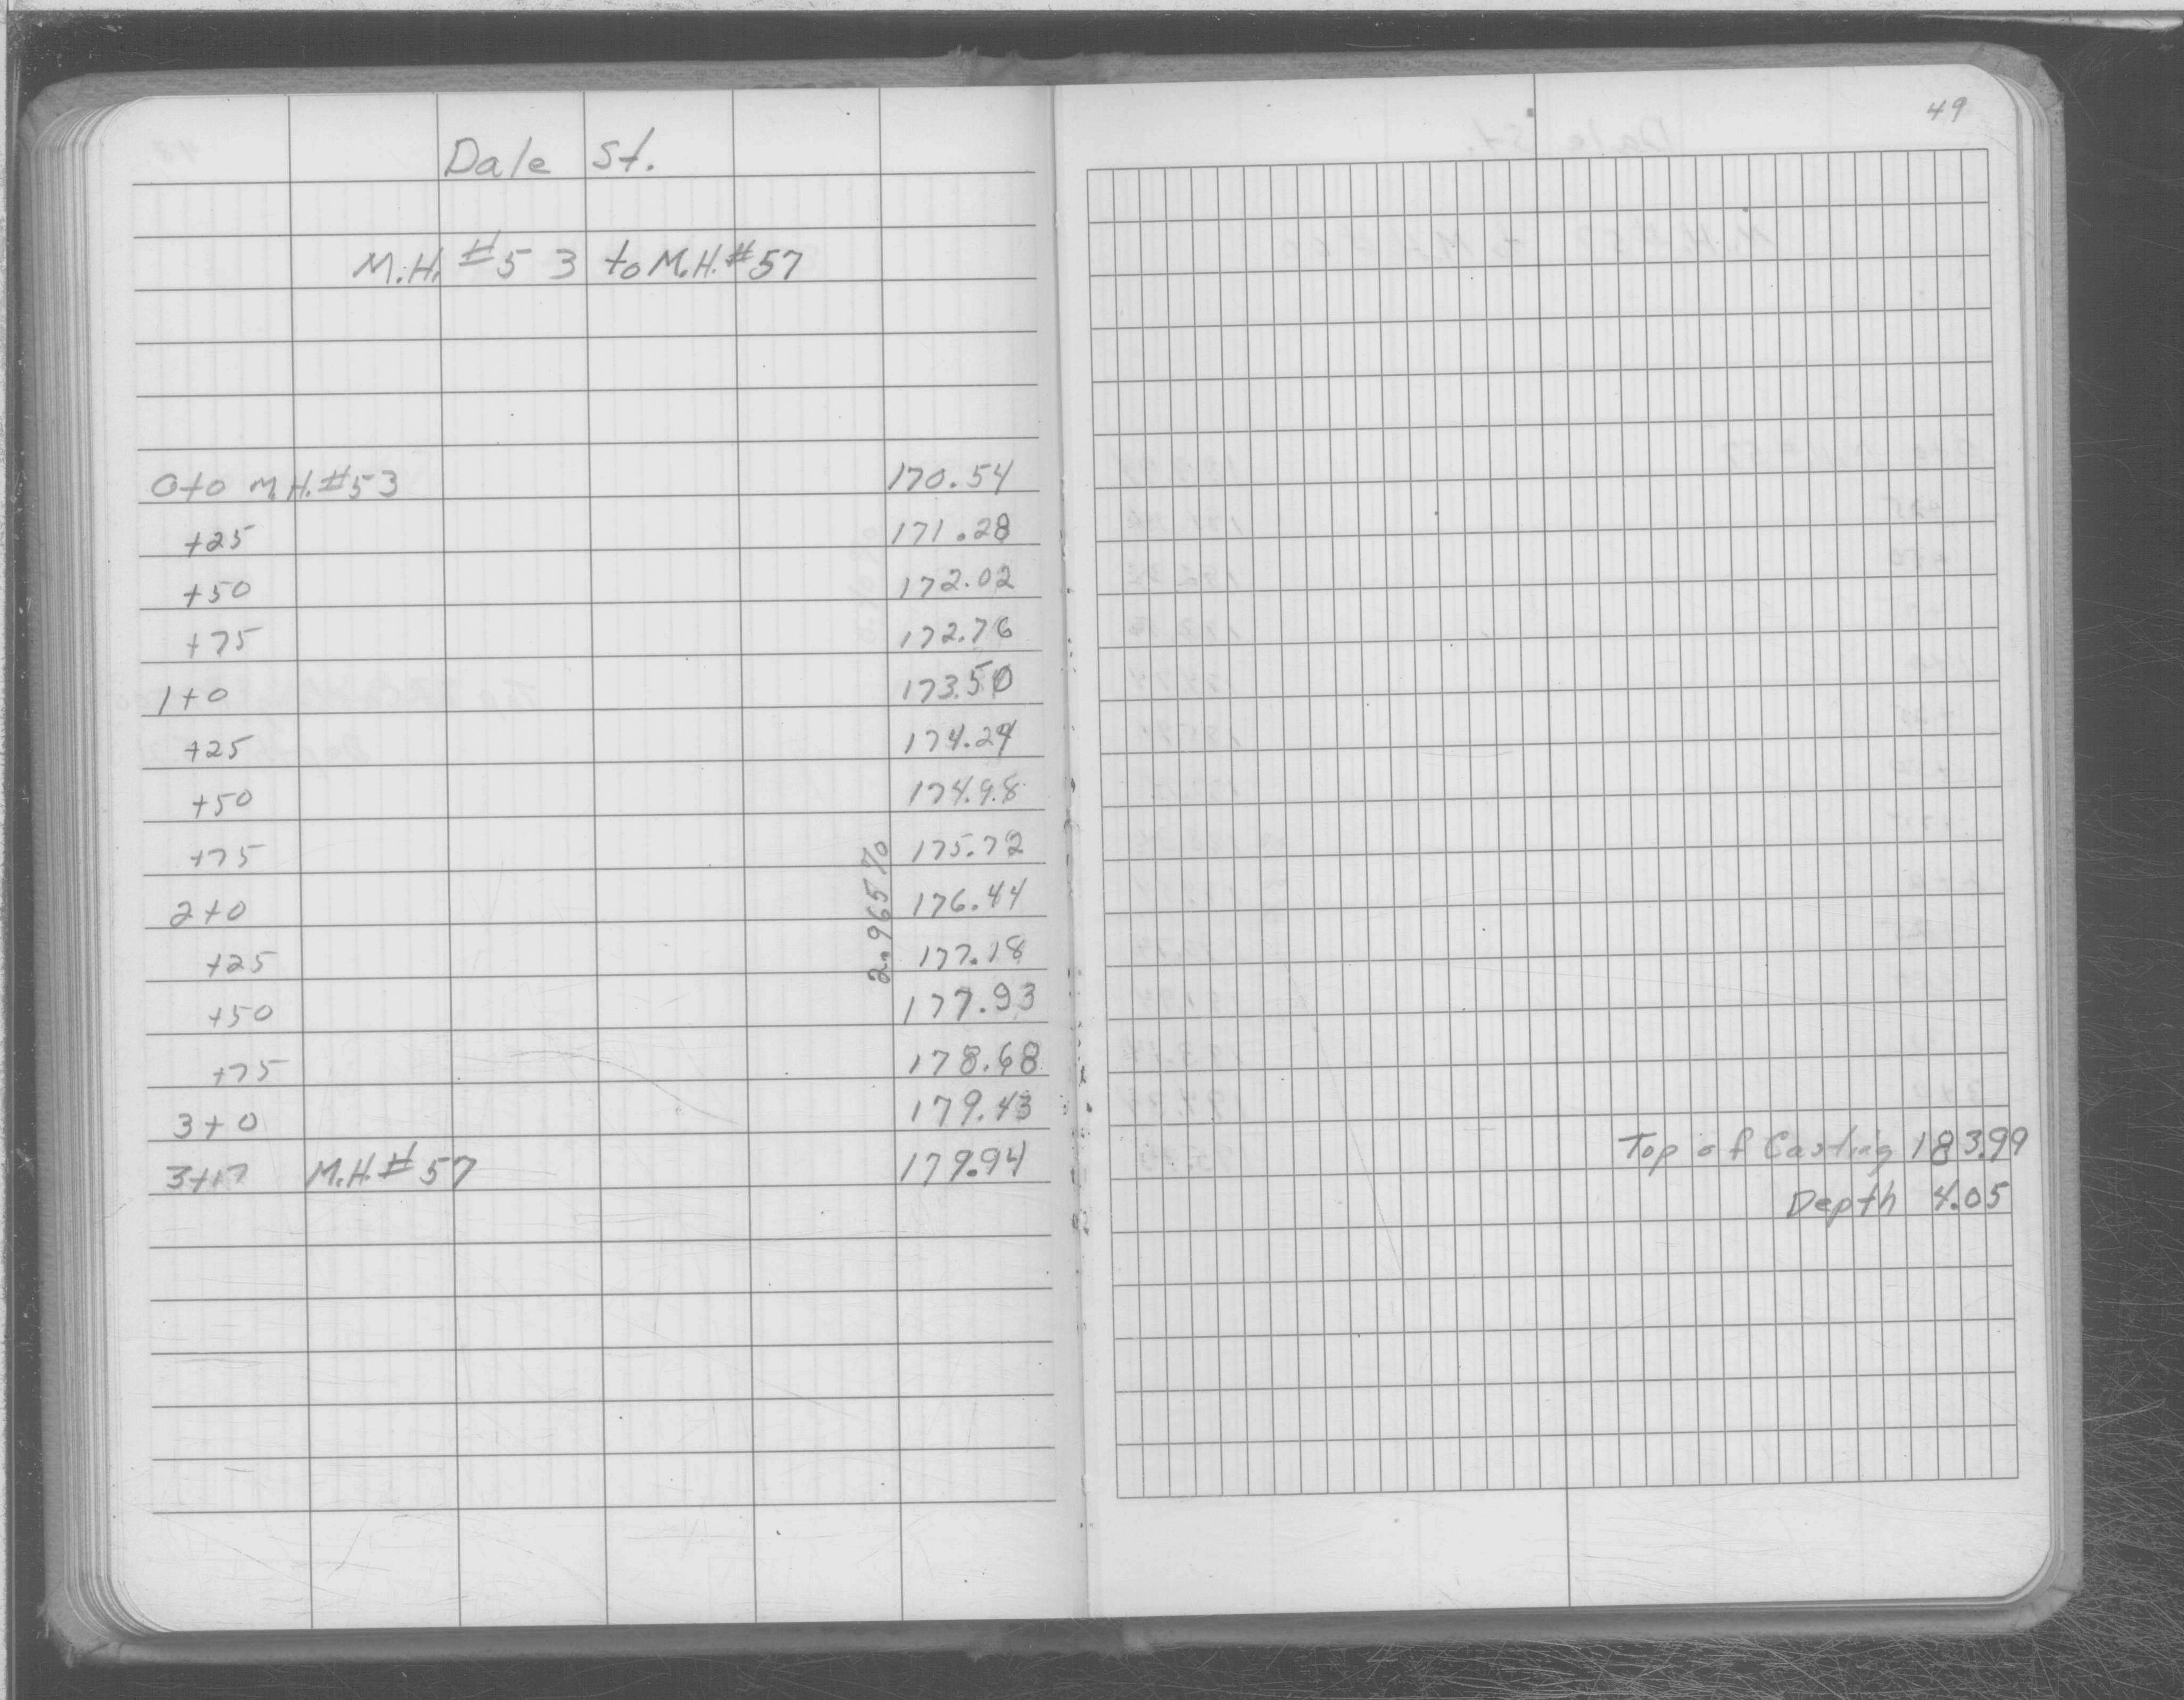 Dale St.
M.H. #53 to M.H. #57
0+0 M.H. #53 170.54
+25 171.28
+50 172.02
+75 172.76
1+0 173.50
+25 174.24
+50 174.98
+75 175.72
2+0 176.44
+25 177.18
+50 177.93
+75 178.68
3+0 179.43
3+17 M.H. #57 179.94
2.965%
49
Top of Casting 183.99
Depth 4.05